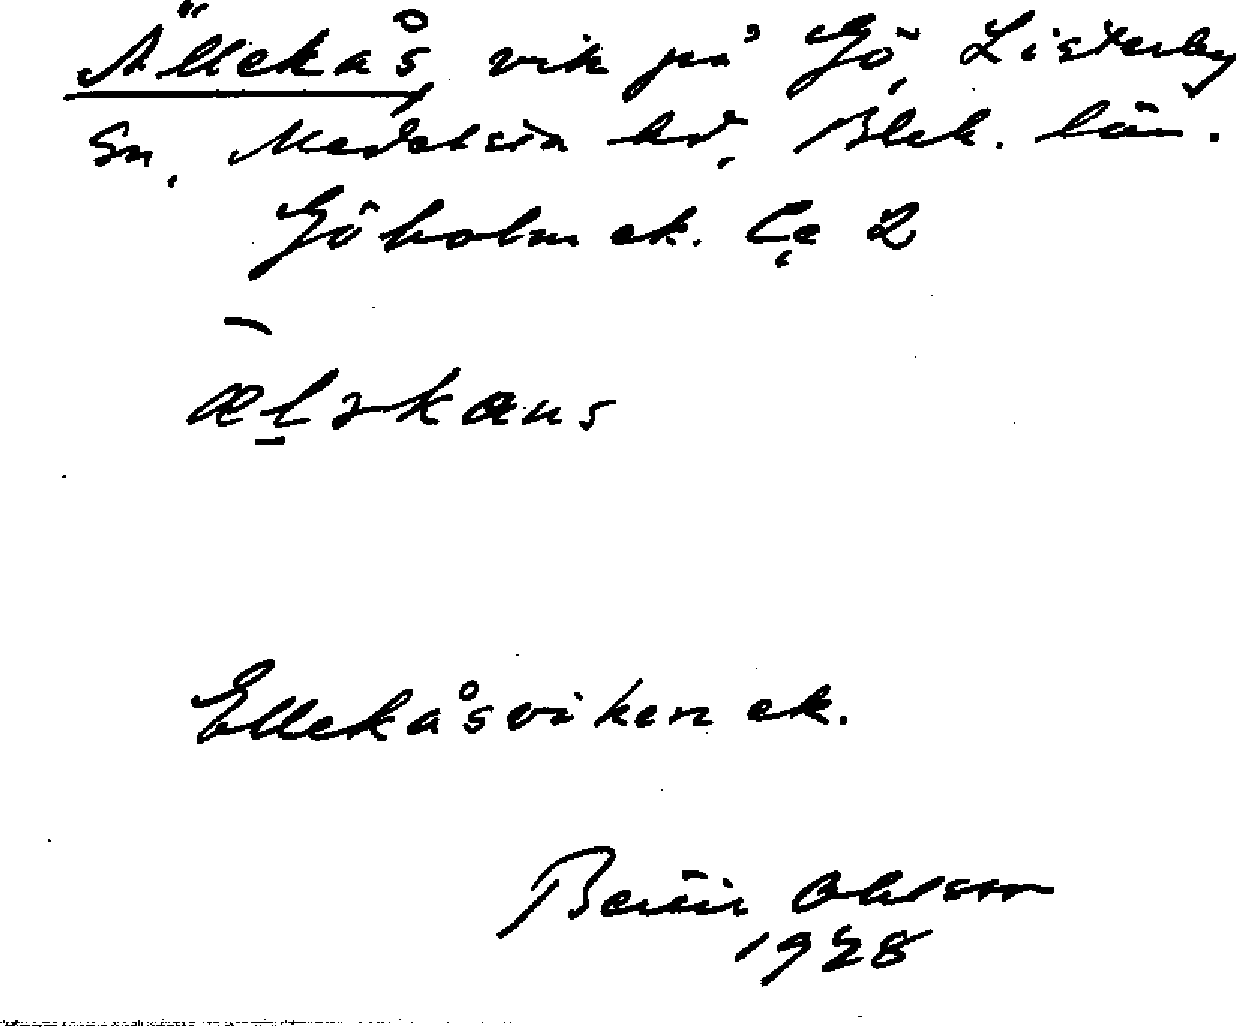 Ällekås, vik på Gö, Listerby
Sn, Medelsta hd, Blek. län.
Göholm ek. Ce 2
Ellekåsviken ek.
Bertil Ohlsson
1928